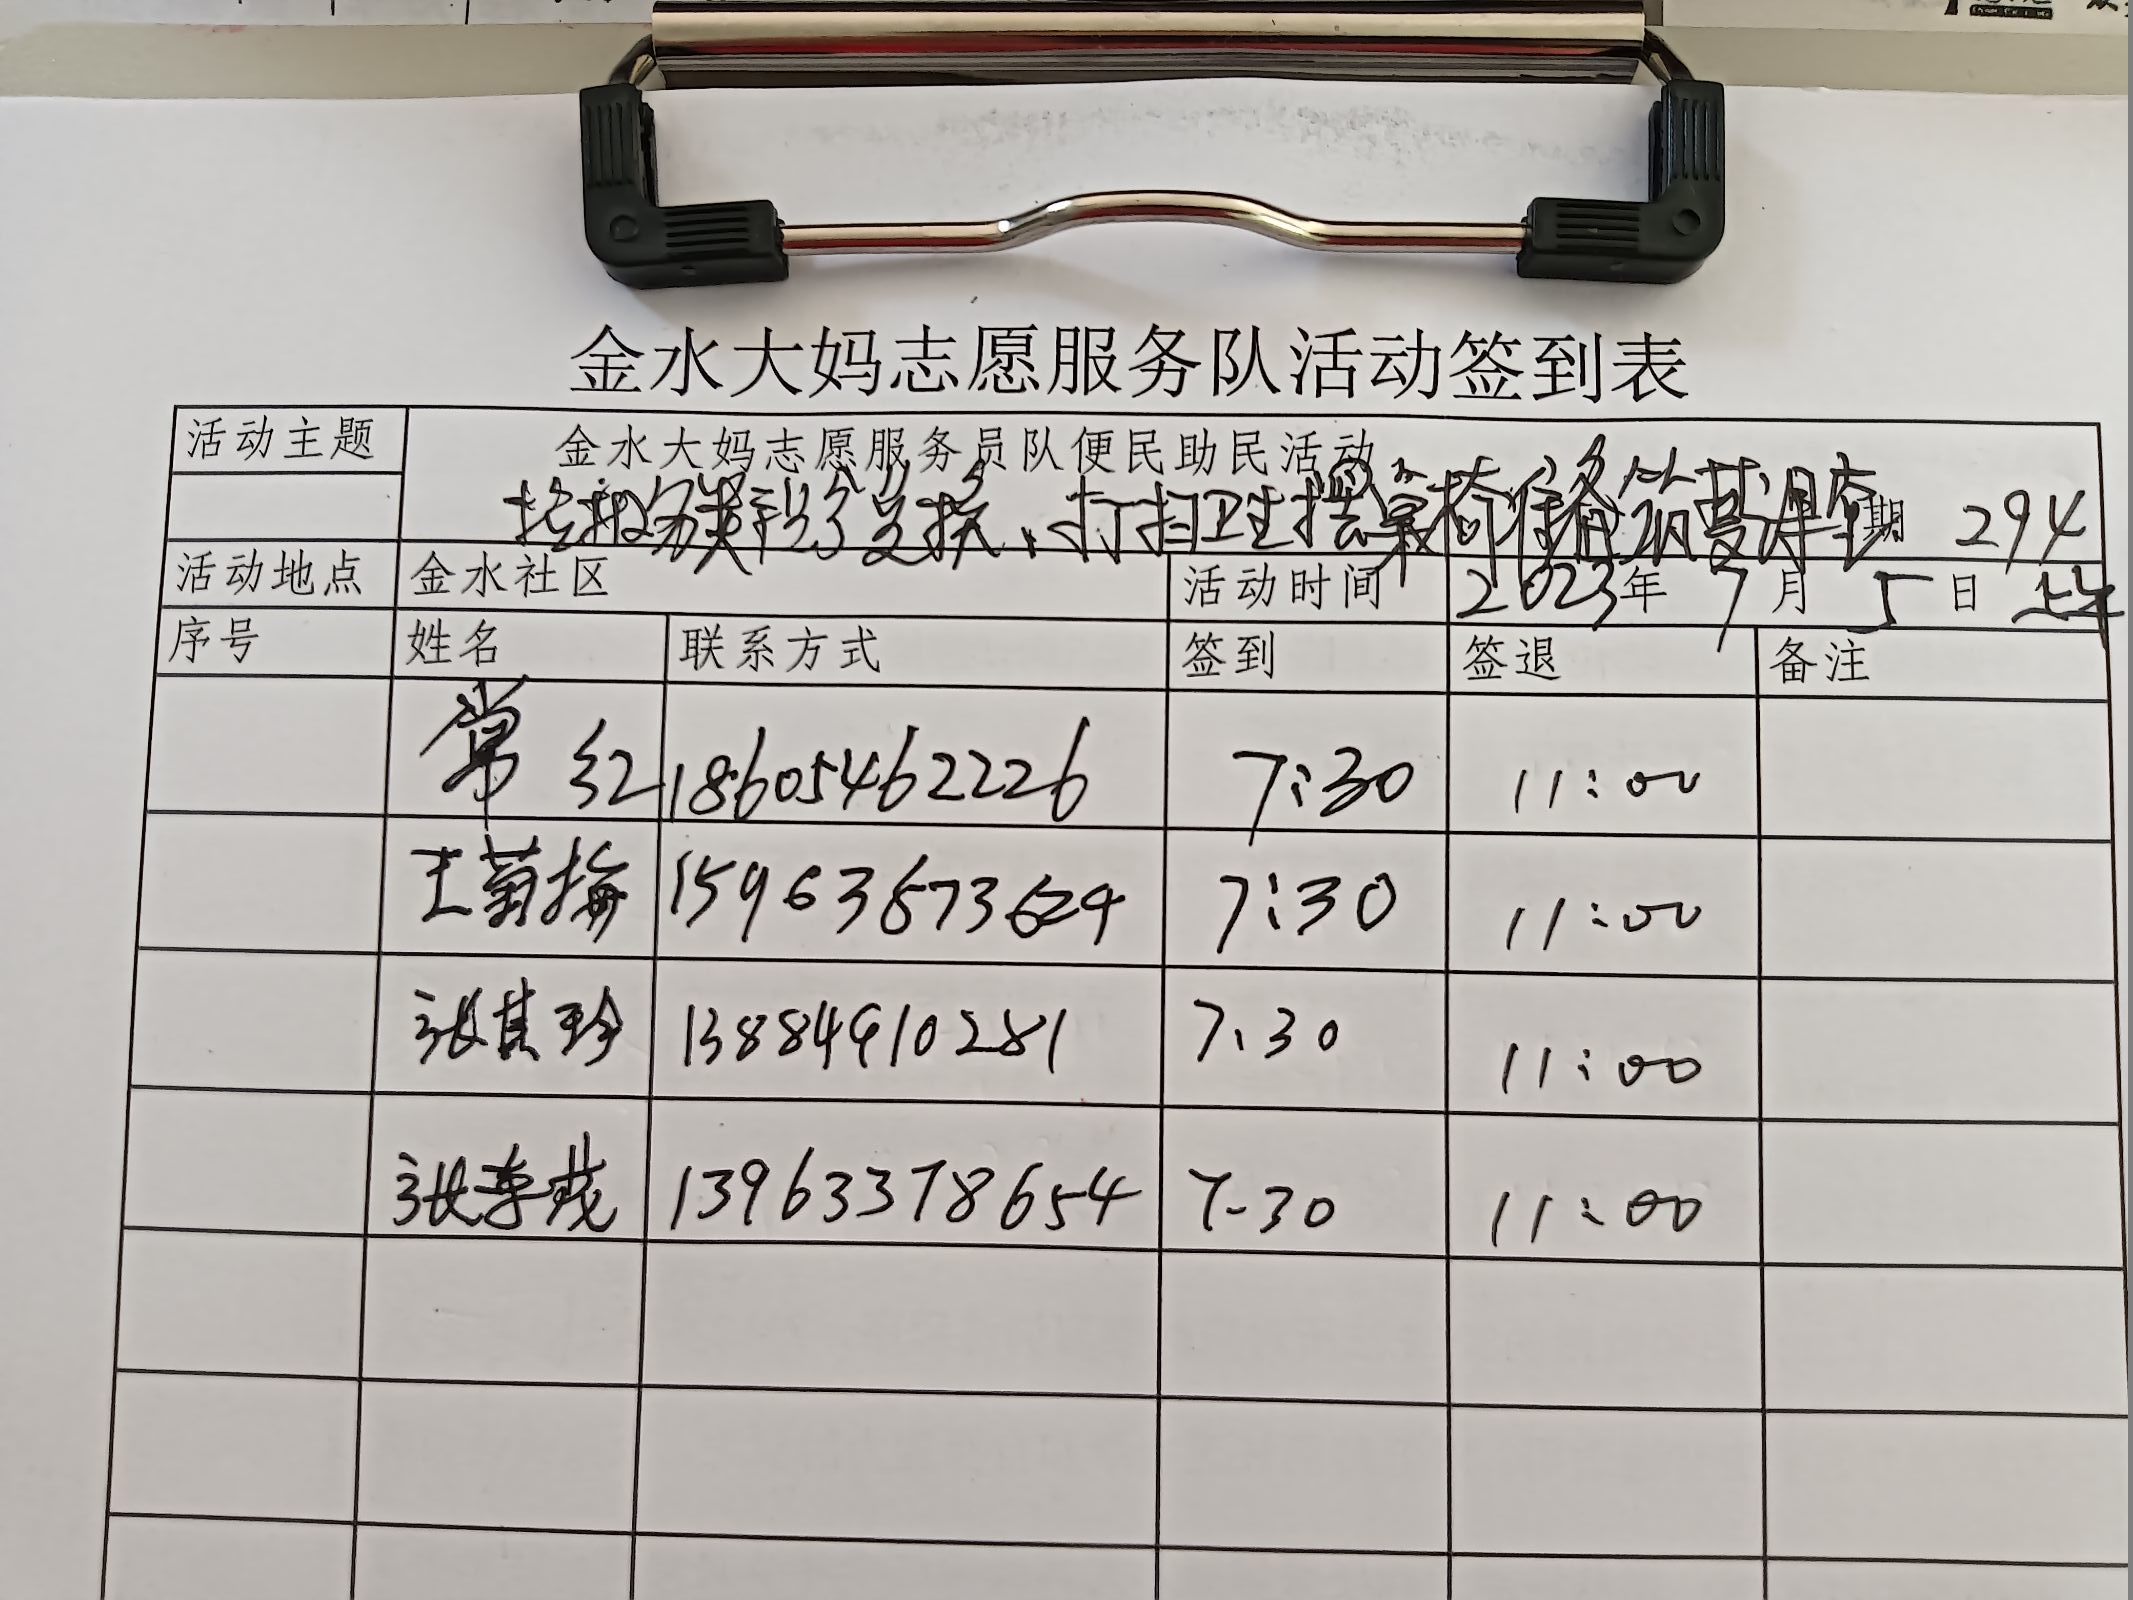 金水大妈志愿服务队活动签到表
活动主题 金水大妈志愿服务员队便民助民活动
垃圾分类积分兑换、打扫卫生摆桌椅准备 期 294
活动地点 金水社区 活动时间 2023年 7月 5日 上午
序号 姓名 联系方式 签到 签退 备注
常红 18605462226 7:30 11:00
王菊梅 15963873624 7:30 11:00
张其珍 13884910281 7:30 11:00
张李茂 13963378654 7-30 11:00